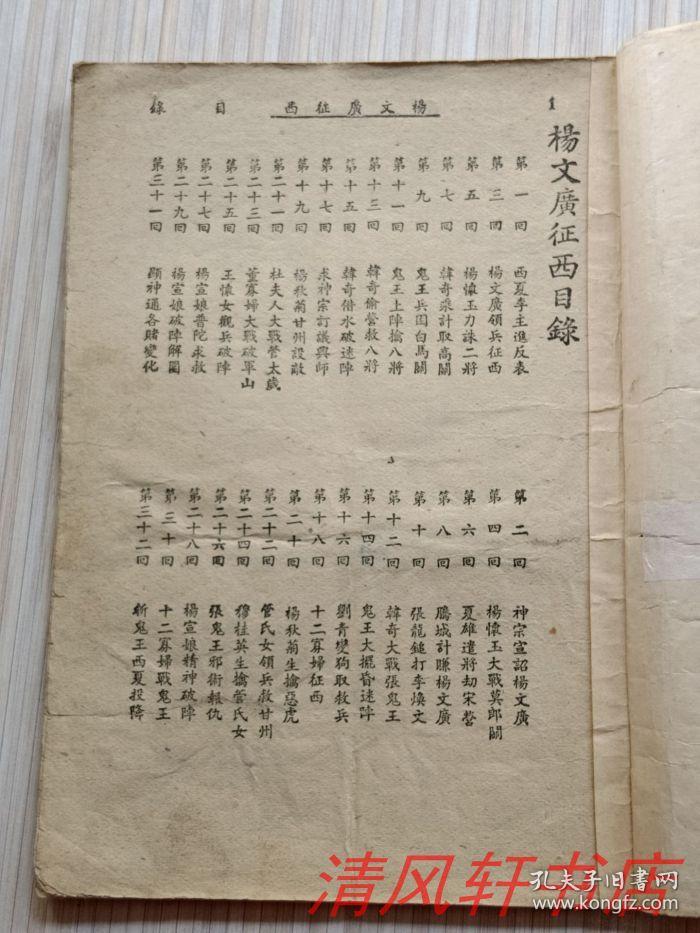 楊文廣征西 目錄
1
楊文廣征西目錄
第一回 西夏李主進反表
第二回 神宗宣詔楊文廣
第三回 楊文廣領兵征西
第四回 楊懷玉大戰莫郎關
第五回 楊懷玉力誅二將
第六回 夏雄遣將刧宋營
第七回 韓奇乘計取高關
第八回 鵰城計賺楊文廣
第九回 鬼王兵困白馬關
第十回 張龍鎚打李煥文
第十一回 鬼王上陣擒八將
第十二回 韓奇大戰張鬼王
第十三回 韓奇偷營救八將
第十四回 鬼王大擺昏迷陣
第十五回 韓奇借水破迷陣
第十六回 劉青變狗取救兵
第十七回 求神宗訂議興師
第十八回 十二寡婦征西
第十九回 楊秋菊甘州設敵
第二十回 楊秋菊生擒惡虎
第二十一回 杜夫人大戰管太歲
第二十二回 管氏女領兵救甘州
第二十三回 董寡婦大戰破軍山
第二十四回 穆桂英生擒管氏女
第二十五回 王懷女觀兵破陣
第二十六回 張鬼王邪術報仇
第二十七回 楊宣娘普陀求救
第二十八回 楊宣娘精神破陣
第二十九回 楊宣娘破陣解圍
第三十回 十二寡婦戰鬼王
第三十一回 顯神通各賭變化
第三十二回 斬鬼王西夏投降
清风轩书店
孔夫子旧书网
www.kongfz.com